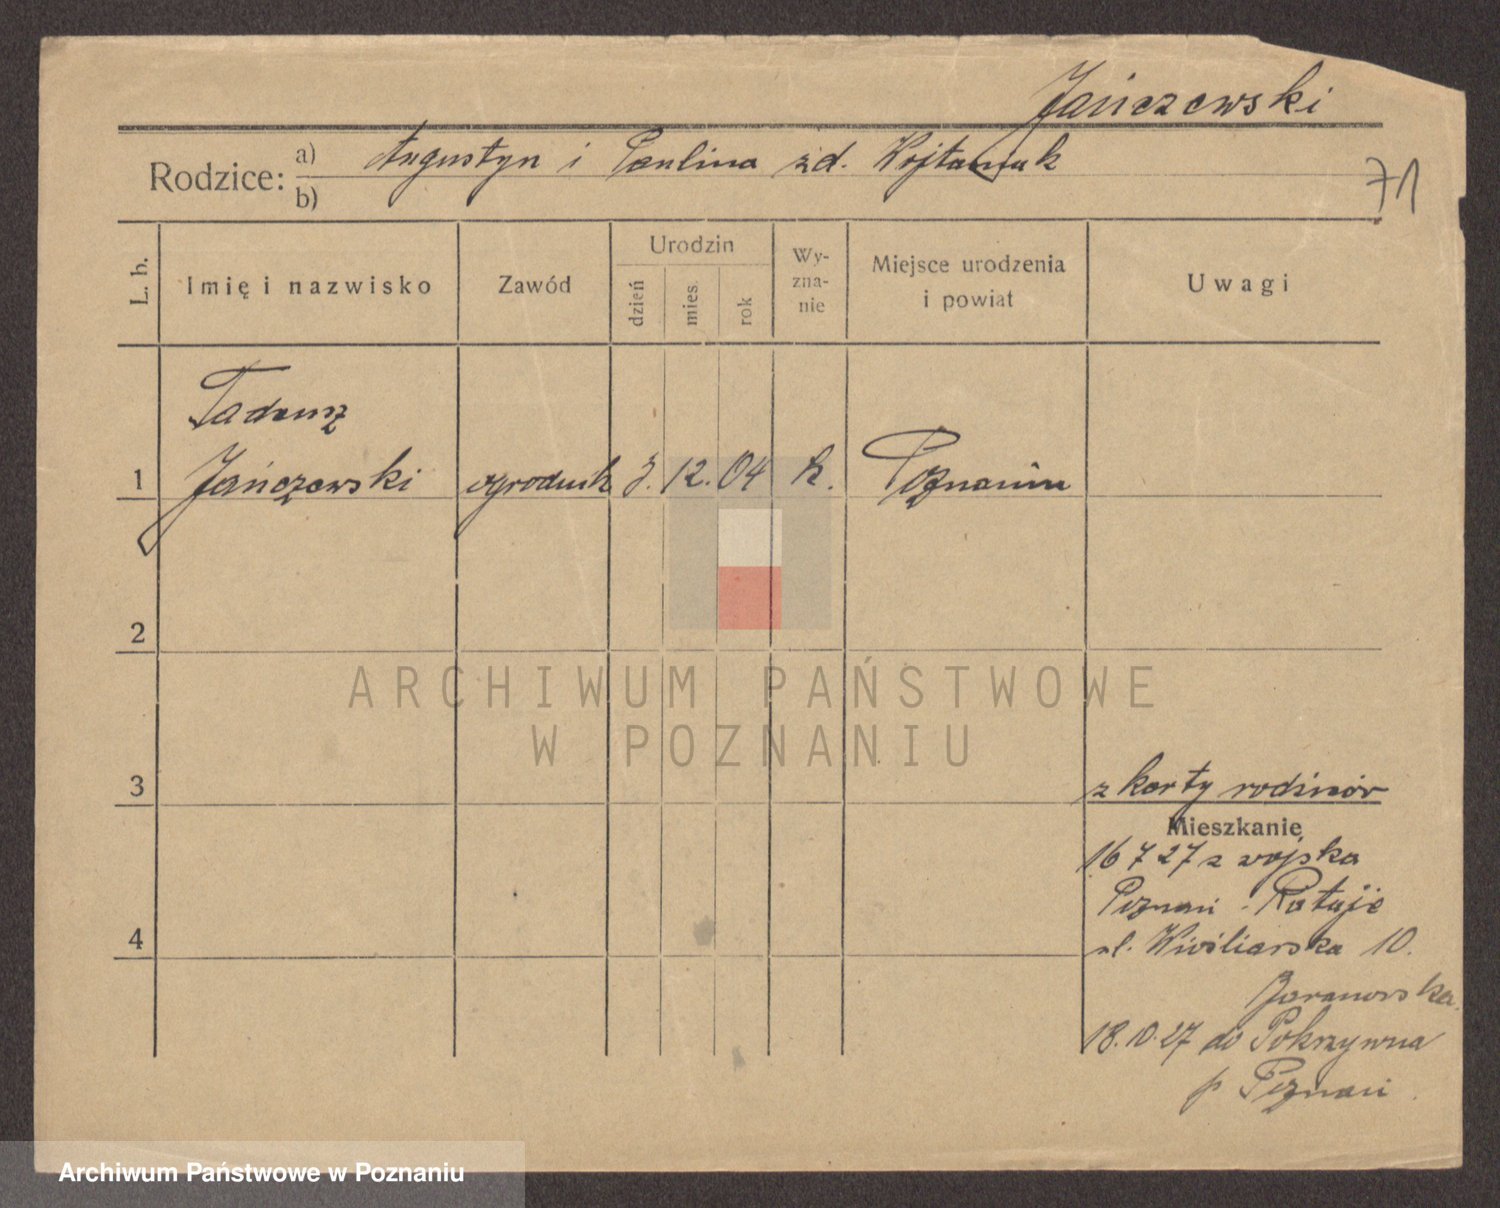 Jańczewski
Rodzice: a) Augustyn i Paulina zd. Wojtaniuk
b)
71
L. b.
Imię i nazwisko
Zawód
Urodzin
dzień
mies.
rok
Wy-
zna-
nie
Miejsce urodzenia
i powiat
Uwagi
Tadeusz
1 Jańczewski ogrodnik 3. 12. 04 k. Poznaniu
2
3
4
z karty rodziców
Mieszkanie
16 7 27 z wojska
Poznań - Rataje
ul. Wioślarska 10.
Baranowska
18.10.27 do Pokrzywna
p Poznań
ARCHIWUM PAŃSTWOWE
W POZNANIU
Archiwum Państwowe w Poznaniu